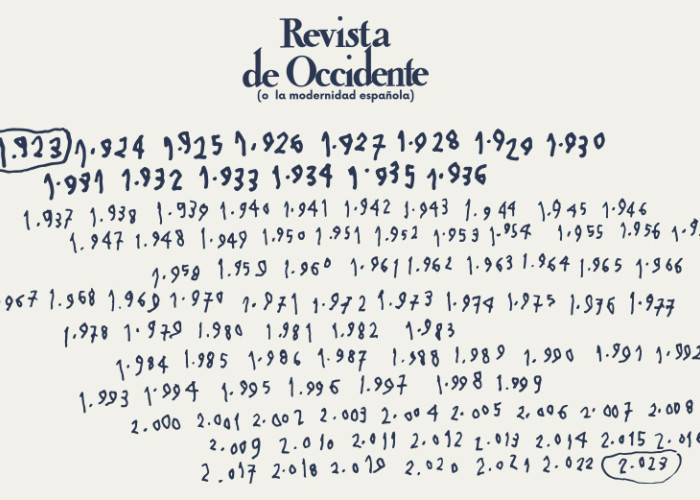 Revista
de Occidente
(o la modernidad española)
1.923 1.924 1.925 1.926 1.927 1.928 1.929 1.930
1.931 1.932 1.933 1.934 1.935 1.936
1.937 1.938 1.939 1.940 1.941 1.942 1.943 1.944 1.945 1.946
1.947 1.948 1.949 1.950 1.951 1.952 1.953 1.954 1.955 1.956
1.958 1.959 1.960 1.961 1.962 1.963 1.964 1.965 1.966
967 1.968 1.969 1.970 1.971 1.972 1.973 1.974 1.975 1.976 1.977
1.978 1.979 1.980 1.981 1.982 1.983
1.984 1.985 1.986 1.987 1.988 1.989 1.990 1.991 1.992
1.993 1.994 1.995 1.996 1.997 1.998 1.999
2.000 2.001 2.002 2.003 2.004 2.005 2.006 2.007 2.008
2.009 2.010 2.011 2.012 2.013 2.014 2.015 2.016
2.017 2.018 2.019 2.020 2.021 2.022 2.023